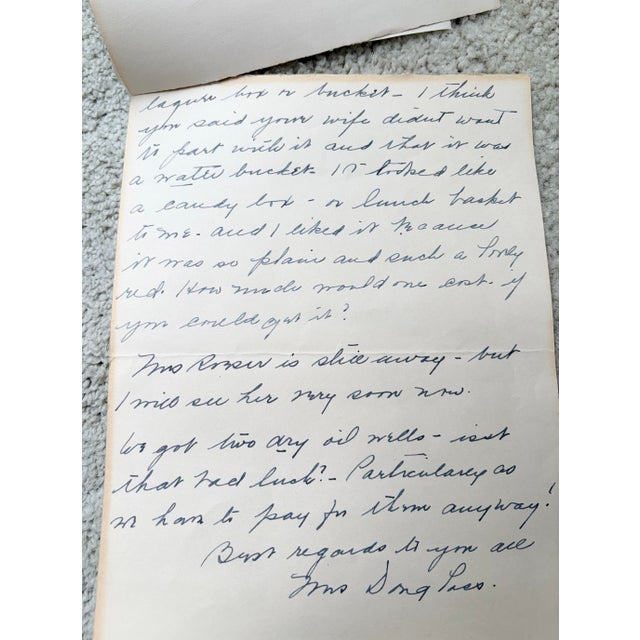 laqure box or bucket - I think
you said your wife didnt want
to part with it and that it was
a water bucket - It looked like
a candy box - or lunch basket
to me - and I liked it because
it was so plain and such a lovely
red. How much would one cost - if
you could get it?
Mrs is still away - but
I will see her very soon now.
We got two dry oil wells - isnt
that bad luck? - Particularly as
we have to pay for them anyway!
Best regards to you all
Mrs Douglass.